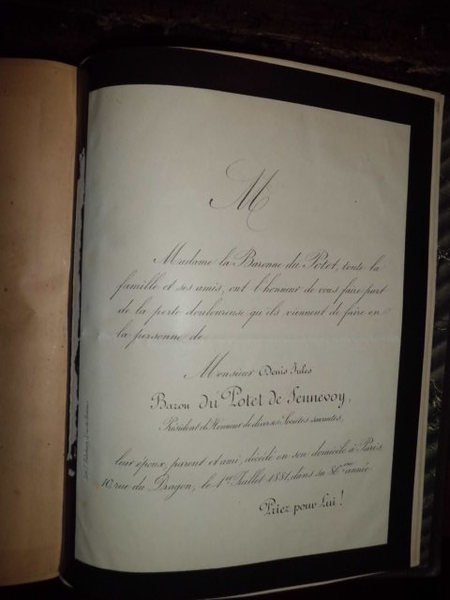 M
Madame la Baronne du Potet, toute la
famille et ses amis, ont l'honneur de vous faire part
de la perte douloureuse qu'ils viennent de faire en
la personne de
Monsieur Denis Jules
Baron du Potet de Sennevoy,
Président d'Honneur de diverses Sociétés savantes,
leur époux, parent et ami, décédé en son domicile à Paris
16, rue du Dragon, le 1er Juillet 1881, dans sa 86ème année.
Priez pour Lui!